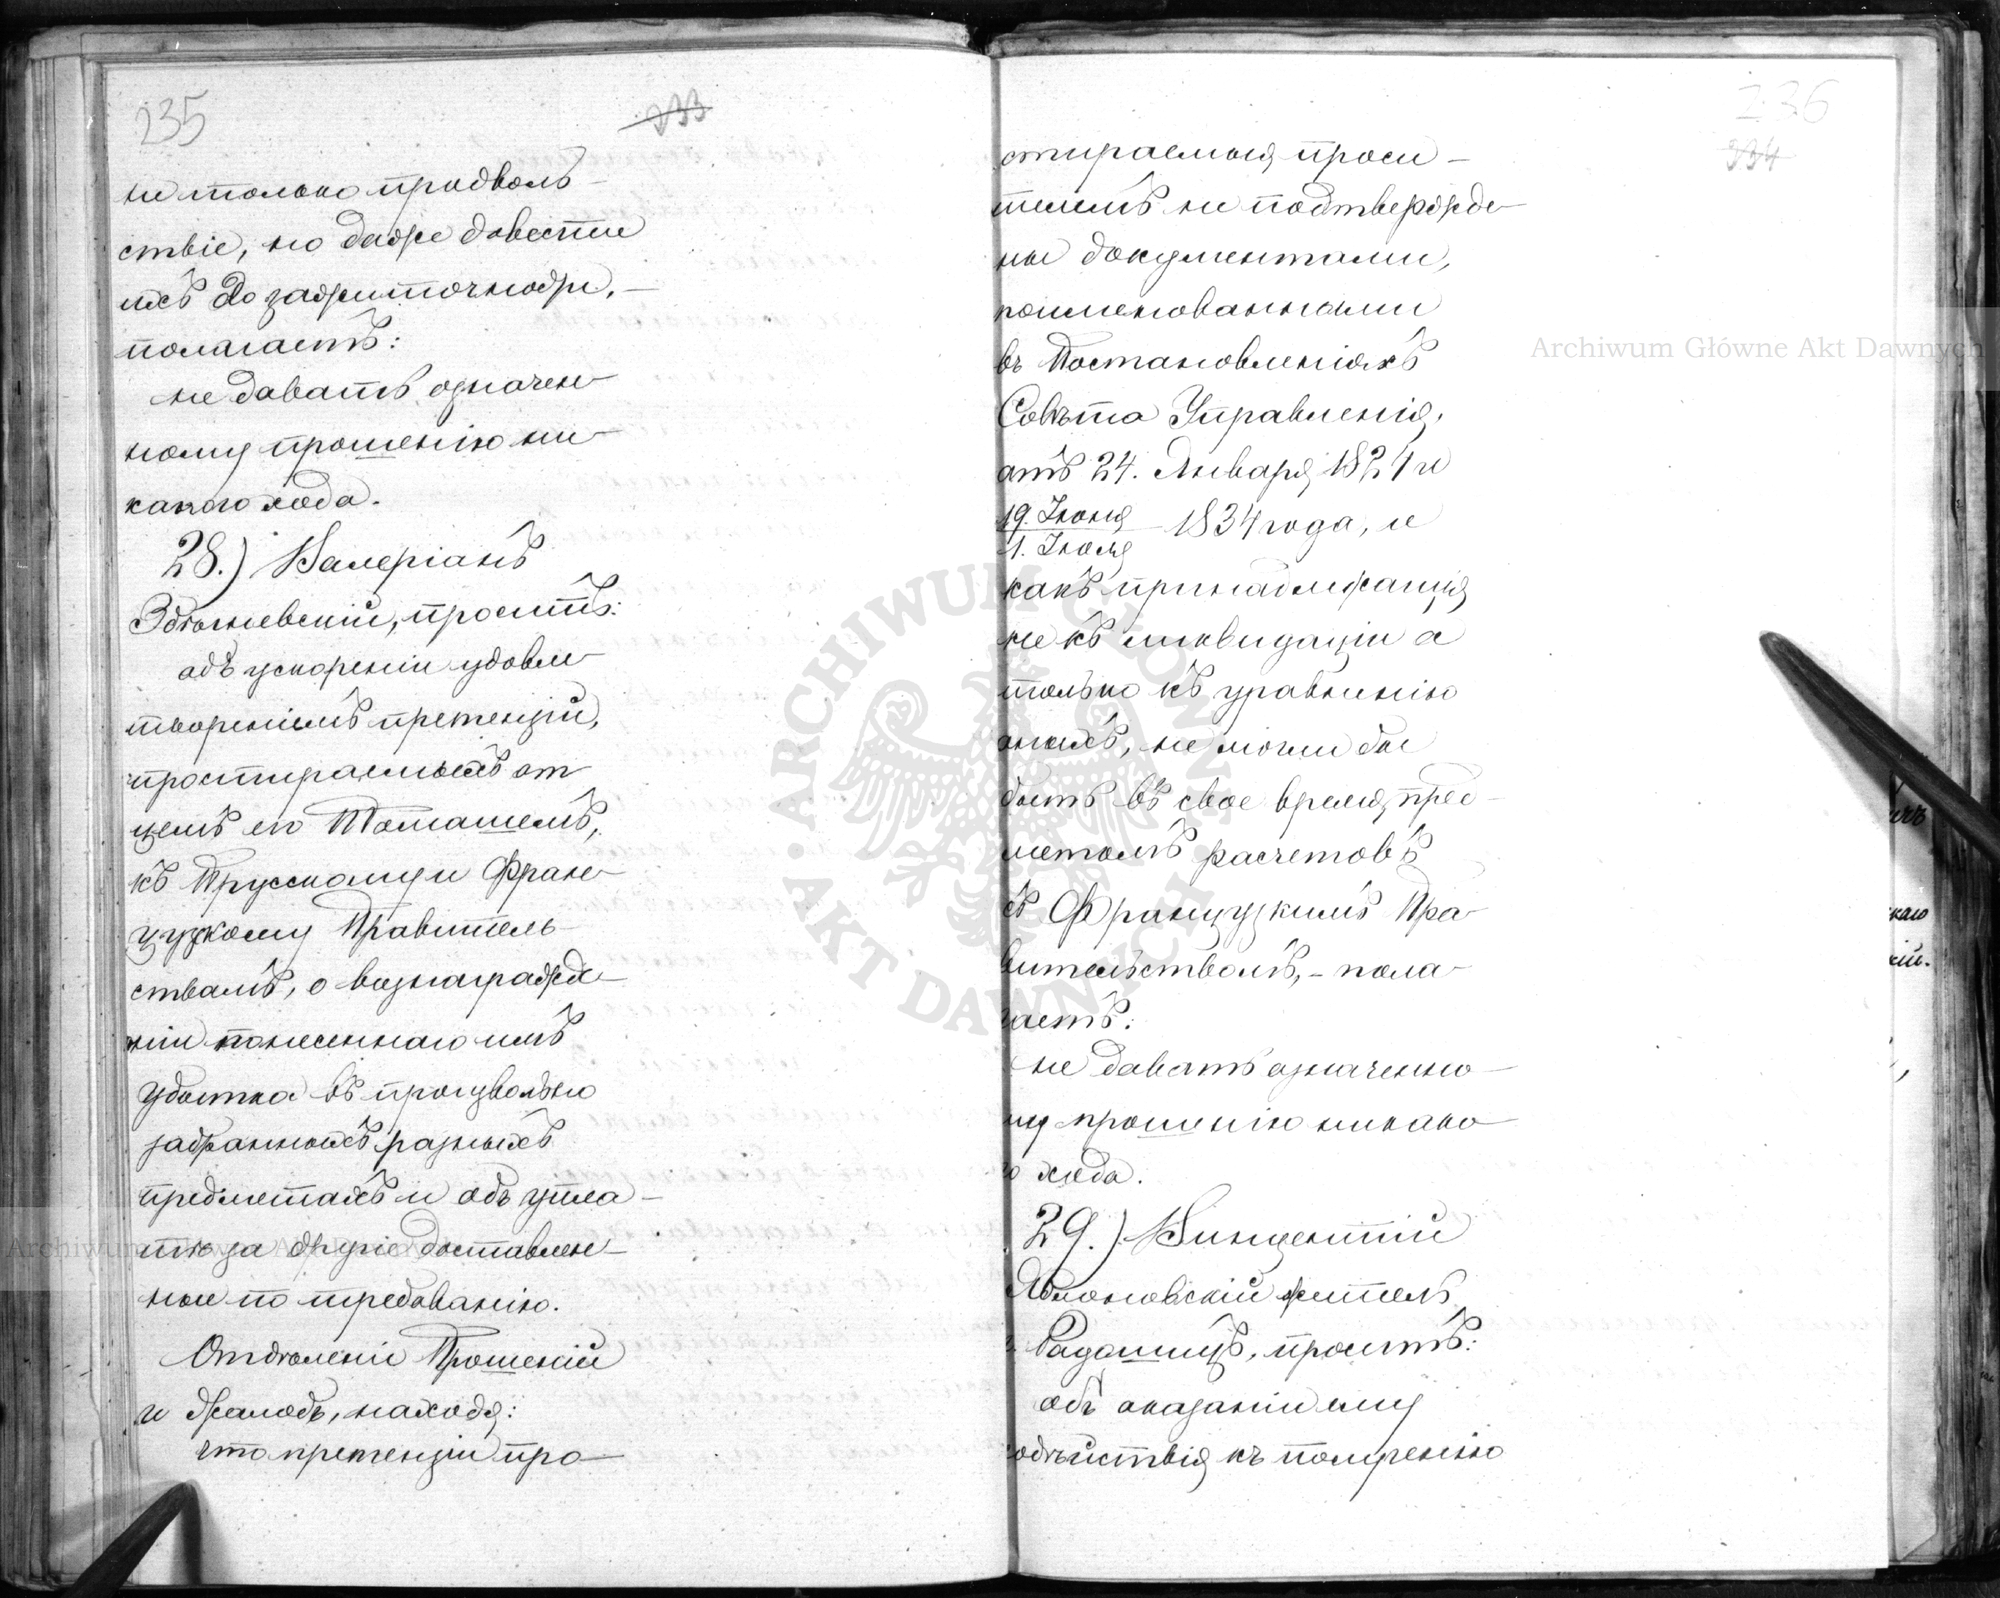 235
233
не только продволь-
ствіе, но даже довести
ихъ до зажиточности, —
полагаетъ:
не давать означен-
ному прошенію ни-
какого хода.
28.) Валеріанъ
Здтоневскій, проситъ:
объ ускореніи удовле-
твореніемъ претензій,
простираемыхъ от-
цемъ его Томашемъ,
къ Прусскому и Фран-
цузскому Правитель-
ствамъ, о вознагражде-
ніи понесеннаго имъ
убытка въ произвольно
забранныхъ разныхъ
предметахъ и объ упла-
тѣ за другіе доставлен-
ные по требованію.
Отдѣленіе Прошеній
и Жалобъ, находя:
что претензіи про-
236
334
стираемыя проси-
телемъ не подтвержде-
ны документами,
поименованными
въ Постановленіяхъ
Совѣта Управленія,
отъ 24. Января 1824 и
19. Іюня
1. Іюля
1834 года, и
какъ принадлежащія
не къ ликвидаціи а
только къ уравненію
оныхъ, не могли бы
быть въ свое время пред-
метомъ расчетовъ
съ Французкимъ Пра-
вительствомъ, — пола-
гаетъ:
не давать означенно-
му прошенію никако-
го хода.
29.) Винцентій
Яблоновскій житель
г. Радошицъ, проситъ:
объ оказаніи ему
содѣйствія къ полученію
Archiwum Główne Akt Dawnych
ARCHIWUM GŁÓWNE AKT DAWNYCH